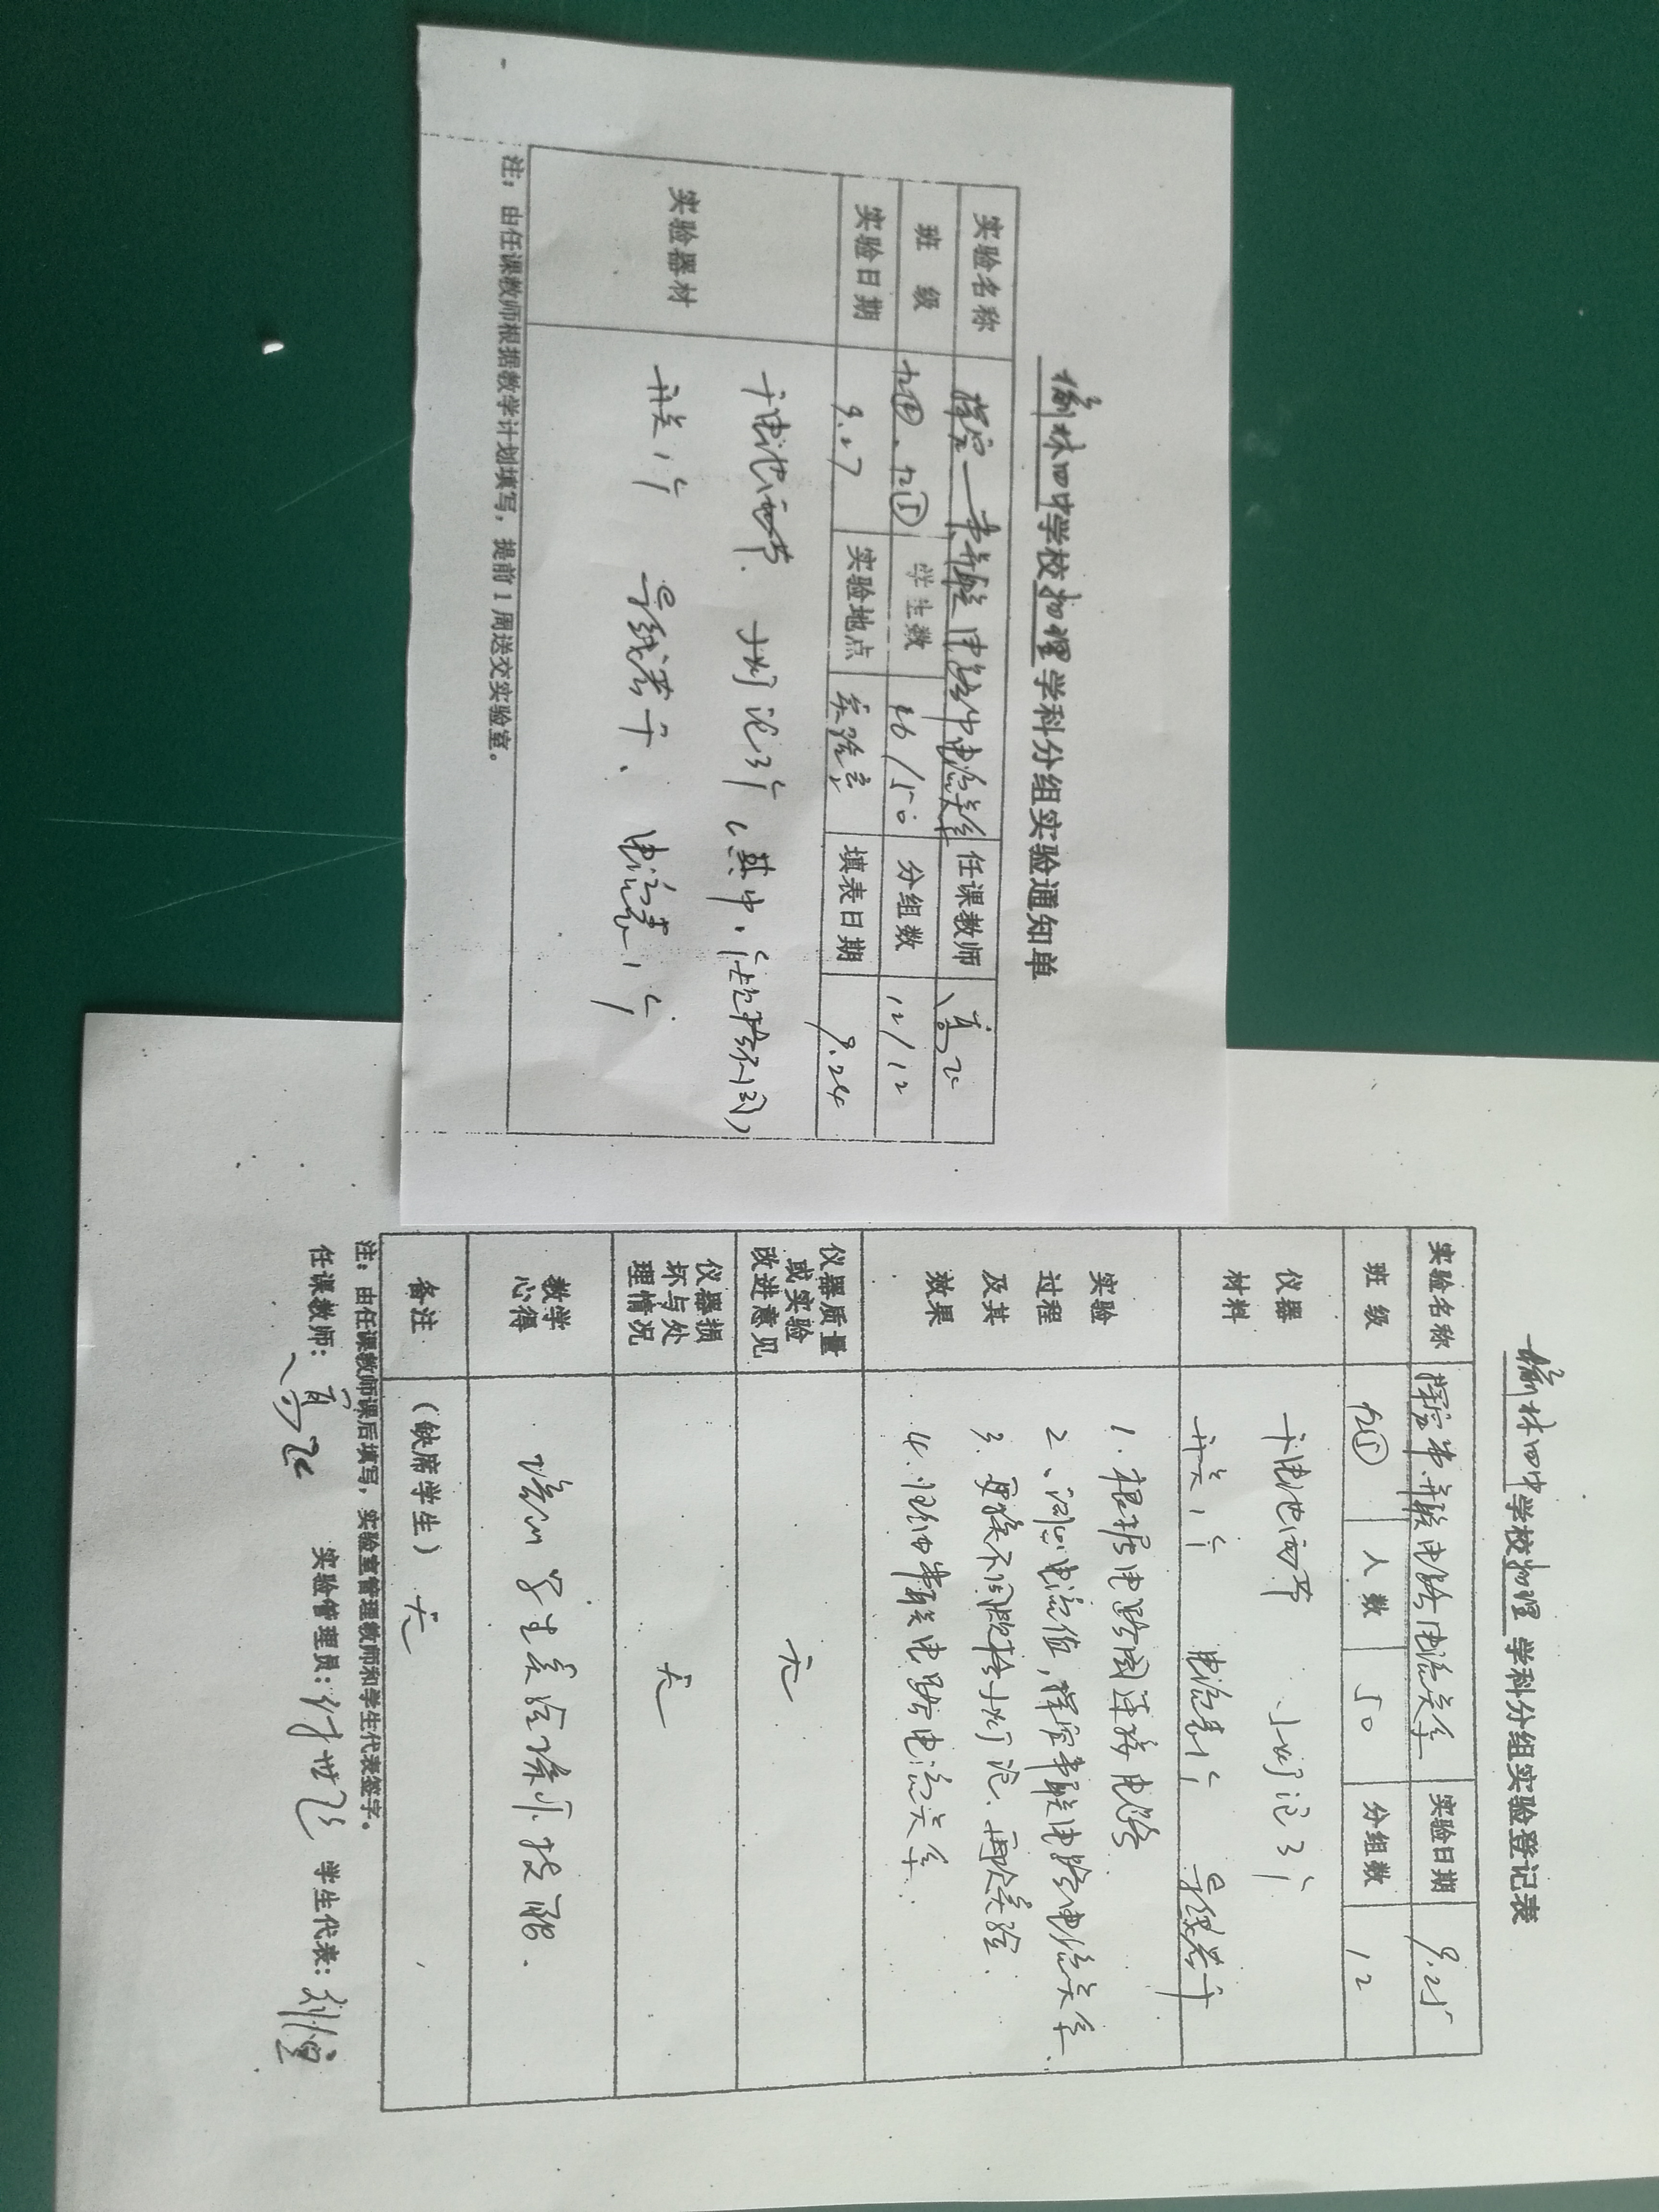 榆林四中学校物理学科分组实验通知单
实验名称 探究串并联电路中电流关系 任课教师
班 级 九④、九⑤ 学生数 /50 分组数 12/12
实验日期 9.27 实验地点 实验室 填表日期 9.24
实验器材
干电池两节、小灯泡3个(其中1个规格不同)
开关1个 导线若干、电流表1个
注:由任课教师根据教学计划填写,提前1周送交实验室。
榆林四中学校物理学科分组实验登记表
实验名称 探究串、并联电路电流关系 实验日期 9.25
班 级 九⑤ 人数 50 分组数 12
仪器材料
干电池两节 小灯泡3个
开关1个 电流表1个 导线若干
实验过程及其效果
1.根据电路图连接电路
2、测出电流值,探究串联电路电流关系.
3.更换不同规格小灯泡、再次实验.
4.归纳串联电路电流关系.
仪器质量或实验改进意见 无
仪器损坏与处理情况 无
教学心得 学生实验操作技能.
备注 (缺席学生) 无
注:由任课教师课后填写,实验室管理教师和学生代表签字。
任课教师: 实验管理员: 学生代表: